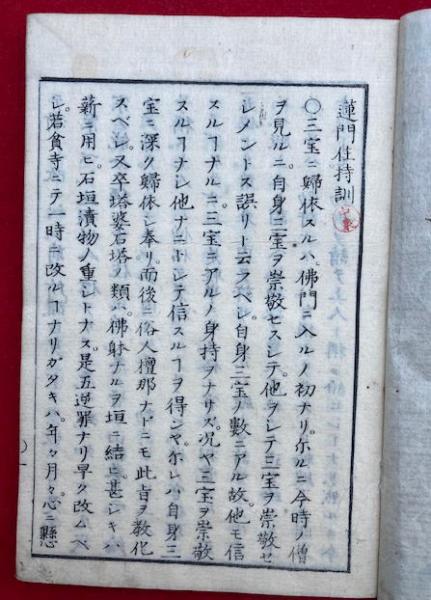 蓮門住持訓
〇三宝ニ歸依スルハ、佛門ニ入ルノ初ナリ。尓ルニ今時ノ僧
ヲ見ルニ自身三宝ヲ崇敬セスレテ。他ヲレテ三宝ヲ崇敬セ
レメントス誤リト云フベレ。自身三宝ノ數ニアル故。他モ信
スルヿナルニ三宝ニアルノ身持ヲナサズ。况ヤ三宝ヲ崇敬
スルヿナレ他ナニトレテ信スルヿヲ得ンヤ。尓レハ自身三
宝ニ深ク歸依レ奉リ。而後ニ俗人檀那ナドニモ此旨ヲ敎化
スベレ。又卒塔婆石塔ノ類ハ佛躰ナルヲ垣ニ結ヒ甚レキハ
薪ニ用ヒ。石垣漬物ノ重レトナス。是五逆罪ナリ早ク改ムベ
レ。若貧寺ニテ一時ニ改ルヿナリガタキハ。年々月々。心ニ懸